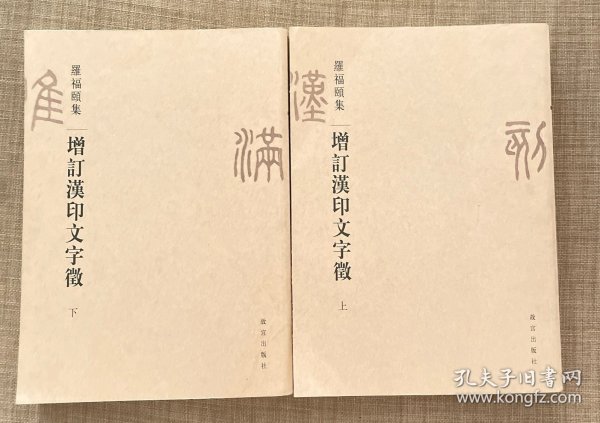 羅福頤集
增訂漢印文字徵
下
滿
故宮出版社
羅福頤集
增訂漢印文字徵
上
漢
故宮出版社
孔夫子旧书网
www.kongfz.com